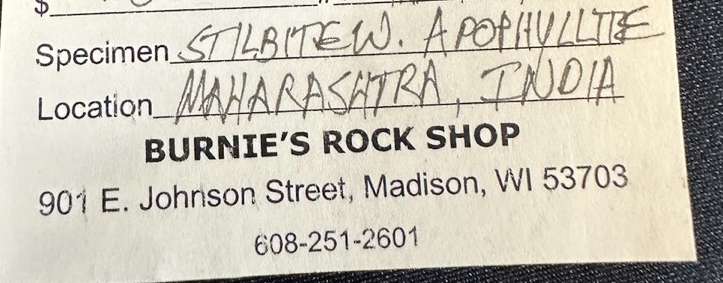 $
Specimen STILBITE W. APOPHYLLITE
Location MAHARASHTRA, INDIA
BURNIE'S ROCK SHOP
901 E. Johnson Street, Madison, WI 53703
608-251-2601